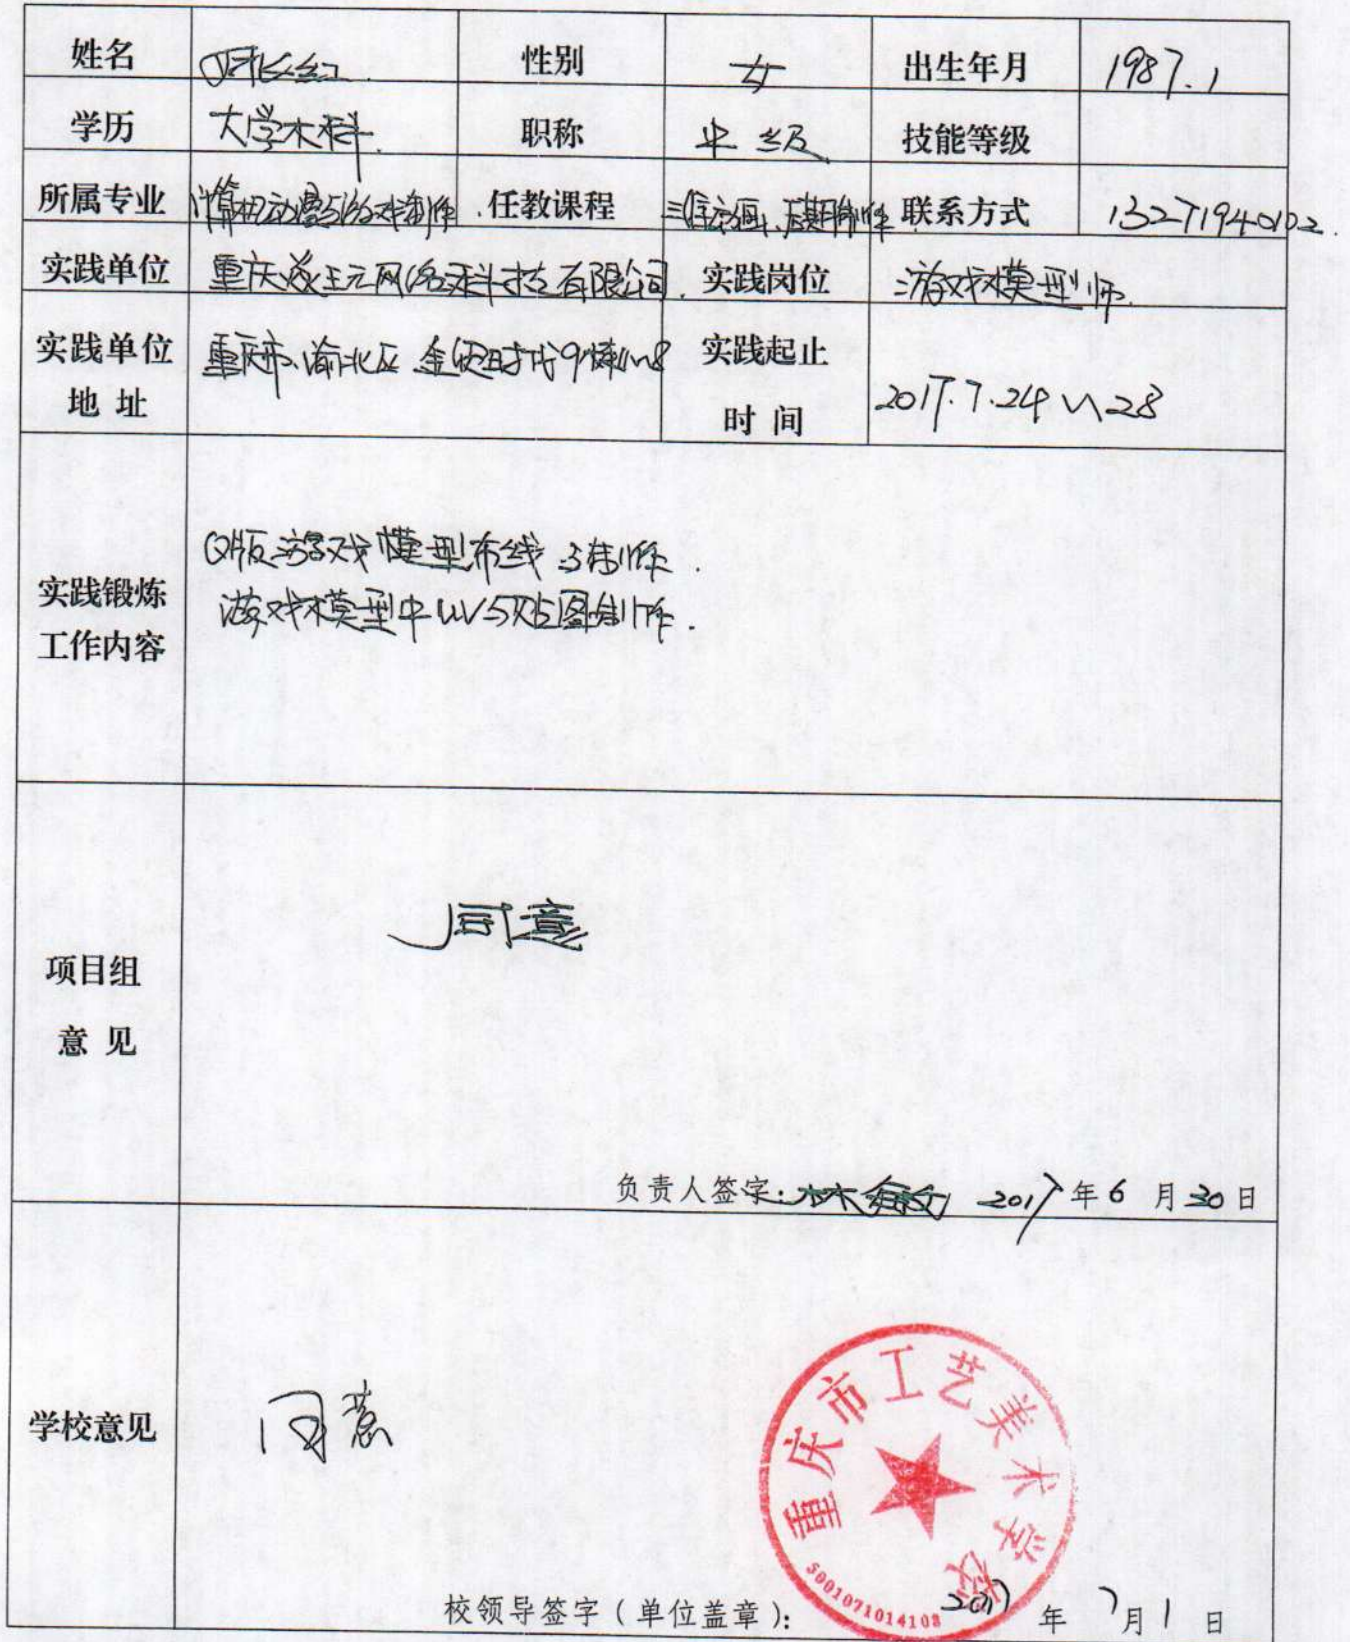 姓名 性别 女 出生年月 1987.1
学历 大学本科 职称 中级 技能等级
所属专业 计算机动漫与游戏制作 任教课程 三维动画、后期制作 联系方式 13271940102
实践单位 重庆 网络科技有限公司 实践岗位 游戏模型师
实践单位 重庆市渝北区 9栋 实践起止
地 址 时 间 2017.7.24~28
Q版游戏模型布线与制作.
实践锻炼
游戏模型中UV与贴图制作.
工作内容
同意
项目组
意 见
负责人签字: 2017年6月30日
学校意见 同意
重庆市工艺美术学校
5001071014108
校领导签字(单位盖章): 2017年7月1日